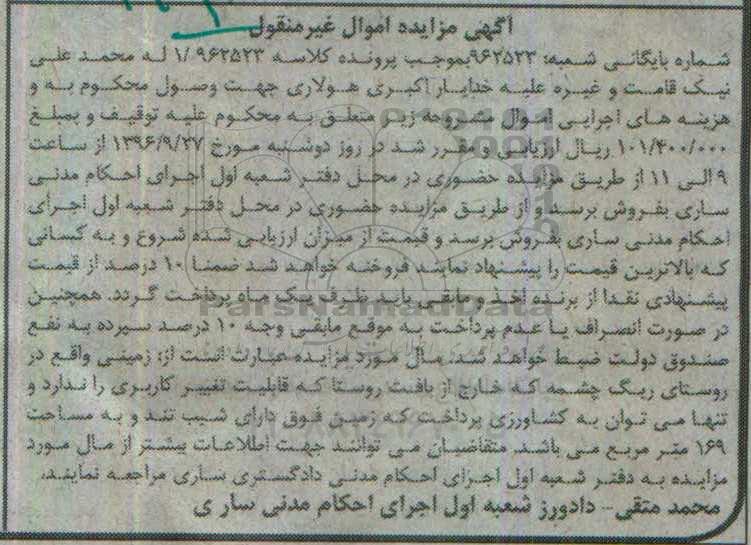 آگهی مزایده اموال غیرمنقول
شماره بایگانی شعبه: ۹۶۲۵۲۳بموجب پرونده کلاسه ۹۶۲۵۲۳ /۱ له محمد علی
نیک قامت و غیره علیه خدایار اکبری هولاری جهت وصول محکوم به و
هزینه های اجرایی اموال مشروحه زیر متعلق به محکوم علیه توقیف و بمبلغ
۱۰۱/۴۰۰/۰۰۰ ریال ارزیابی و مقرر شد در روز دوشنبه مورخ ۱۳۹۶/۹/۲۷ از ساعت
۹ الی ۱۱ از طریق مزایده حضوری در محل دفتر شعبه اول اجرای احکام مدنی
ساری بفروش برسد و از طریق مزایده حضوری در محل دفتر شعبه اول اجرای
احکام مدنی ساری بفروش برسد و قیمت از میزان ارزیابی شده شروع و به کسانی
که بالاترین قیمت را پیشنهاد نمایند فروخته خواهد شد ضمنا ۱۰ درصد از قیمت
پیشنهادی نقدا از برنده اخذ و مابقی باید ظرف یک ماه پرداخت گردد. همچنین
ParsNamadData
در صورت انصراف یا عدم پرداخت به موقع مابقی وجه ۱۰ درصد سپرده به نفع
صندوق دولت ضبط خواهد شد. مال مورد مزایده عبارت است از: زمینی واقع در
روستای ریگ چشمه که خارج از بافت روستا که قابلیت تغییر کاربری را ندارد و
تنها می توان به کشاورزی پرداخت که زمین فوق دارای شیب تند و به مساحت
۱۶۹ متر مربع می باشد. متقاضیان می توانند جهت اطلاعات بیشتر از مال مورد
مزایده به دفتر شعبه اول اجرای احکام مدنی دادگستری ساری مراجعه نمایند.
محمد متقی- دادورز شعبه اول اجرای احکام مدنی سار ی